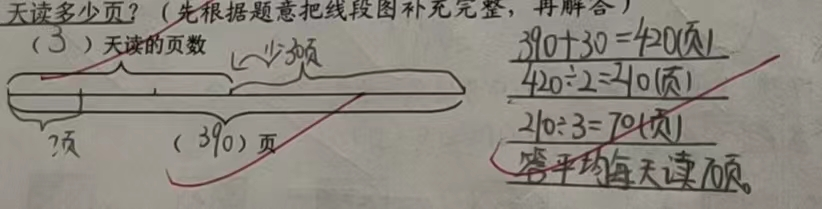 天读多少页？（先根据题意把线段图补充完整，再解答）
（3）天读的页数
少30页
?页
（390）页
390+30=420(页)
420÷2=210(页)
210÷3=70(页)
答平均每天读70页。